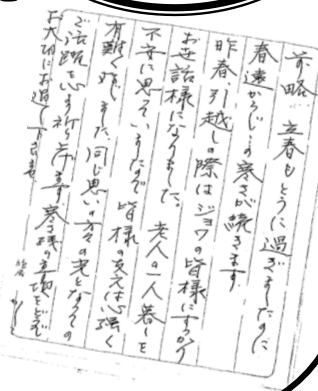 前略 立春もとうに過ぎましたのに
春遠からじの寒さが続きます
昨春、引越しの際はジョウの皆様にすっかり
お世話様になりました。老人の一人暮しを
不安に思っていましたので皆様の支えは心強く
有難く存じました。同じ思いの方々の光となっての
ご活躍を心よりお祈り申します 寒さ
お大切にお過し下さいませ